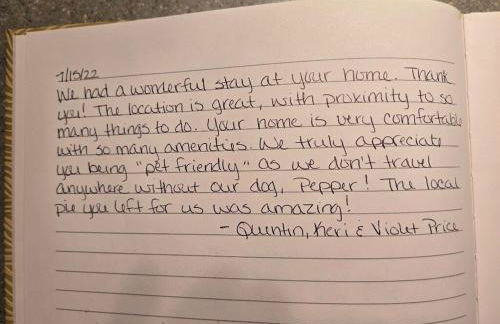 7/15/22
We had a wonderful stay at your home. Thank
you! The location is great, with proximity to so
many things to do. Your home is very comfortable
with so many amenities. We truly appreciate
you being "pet friendly" as we don't travel
anywhere without our dog, Pepper! The local
pie you left for us was amazing!
- Quentin, Keri & Violet Price